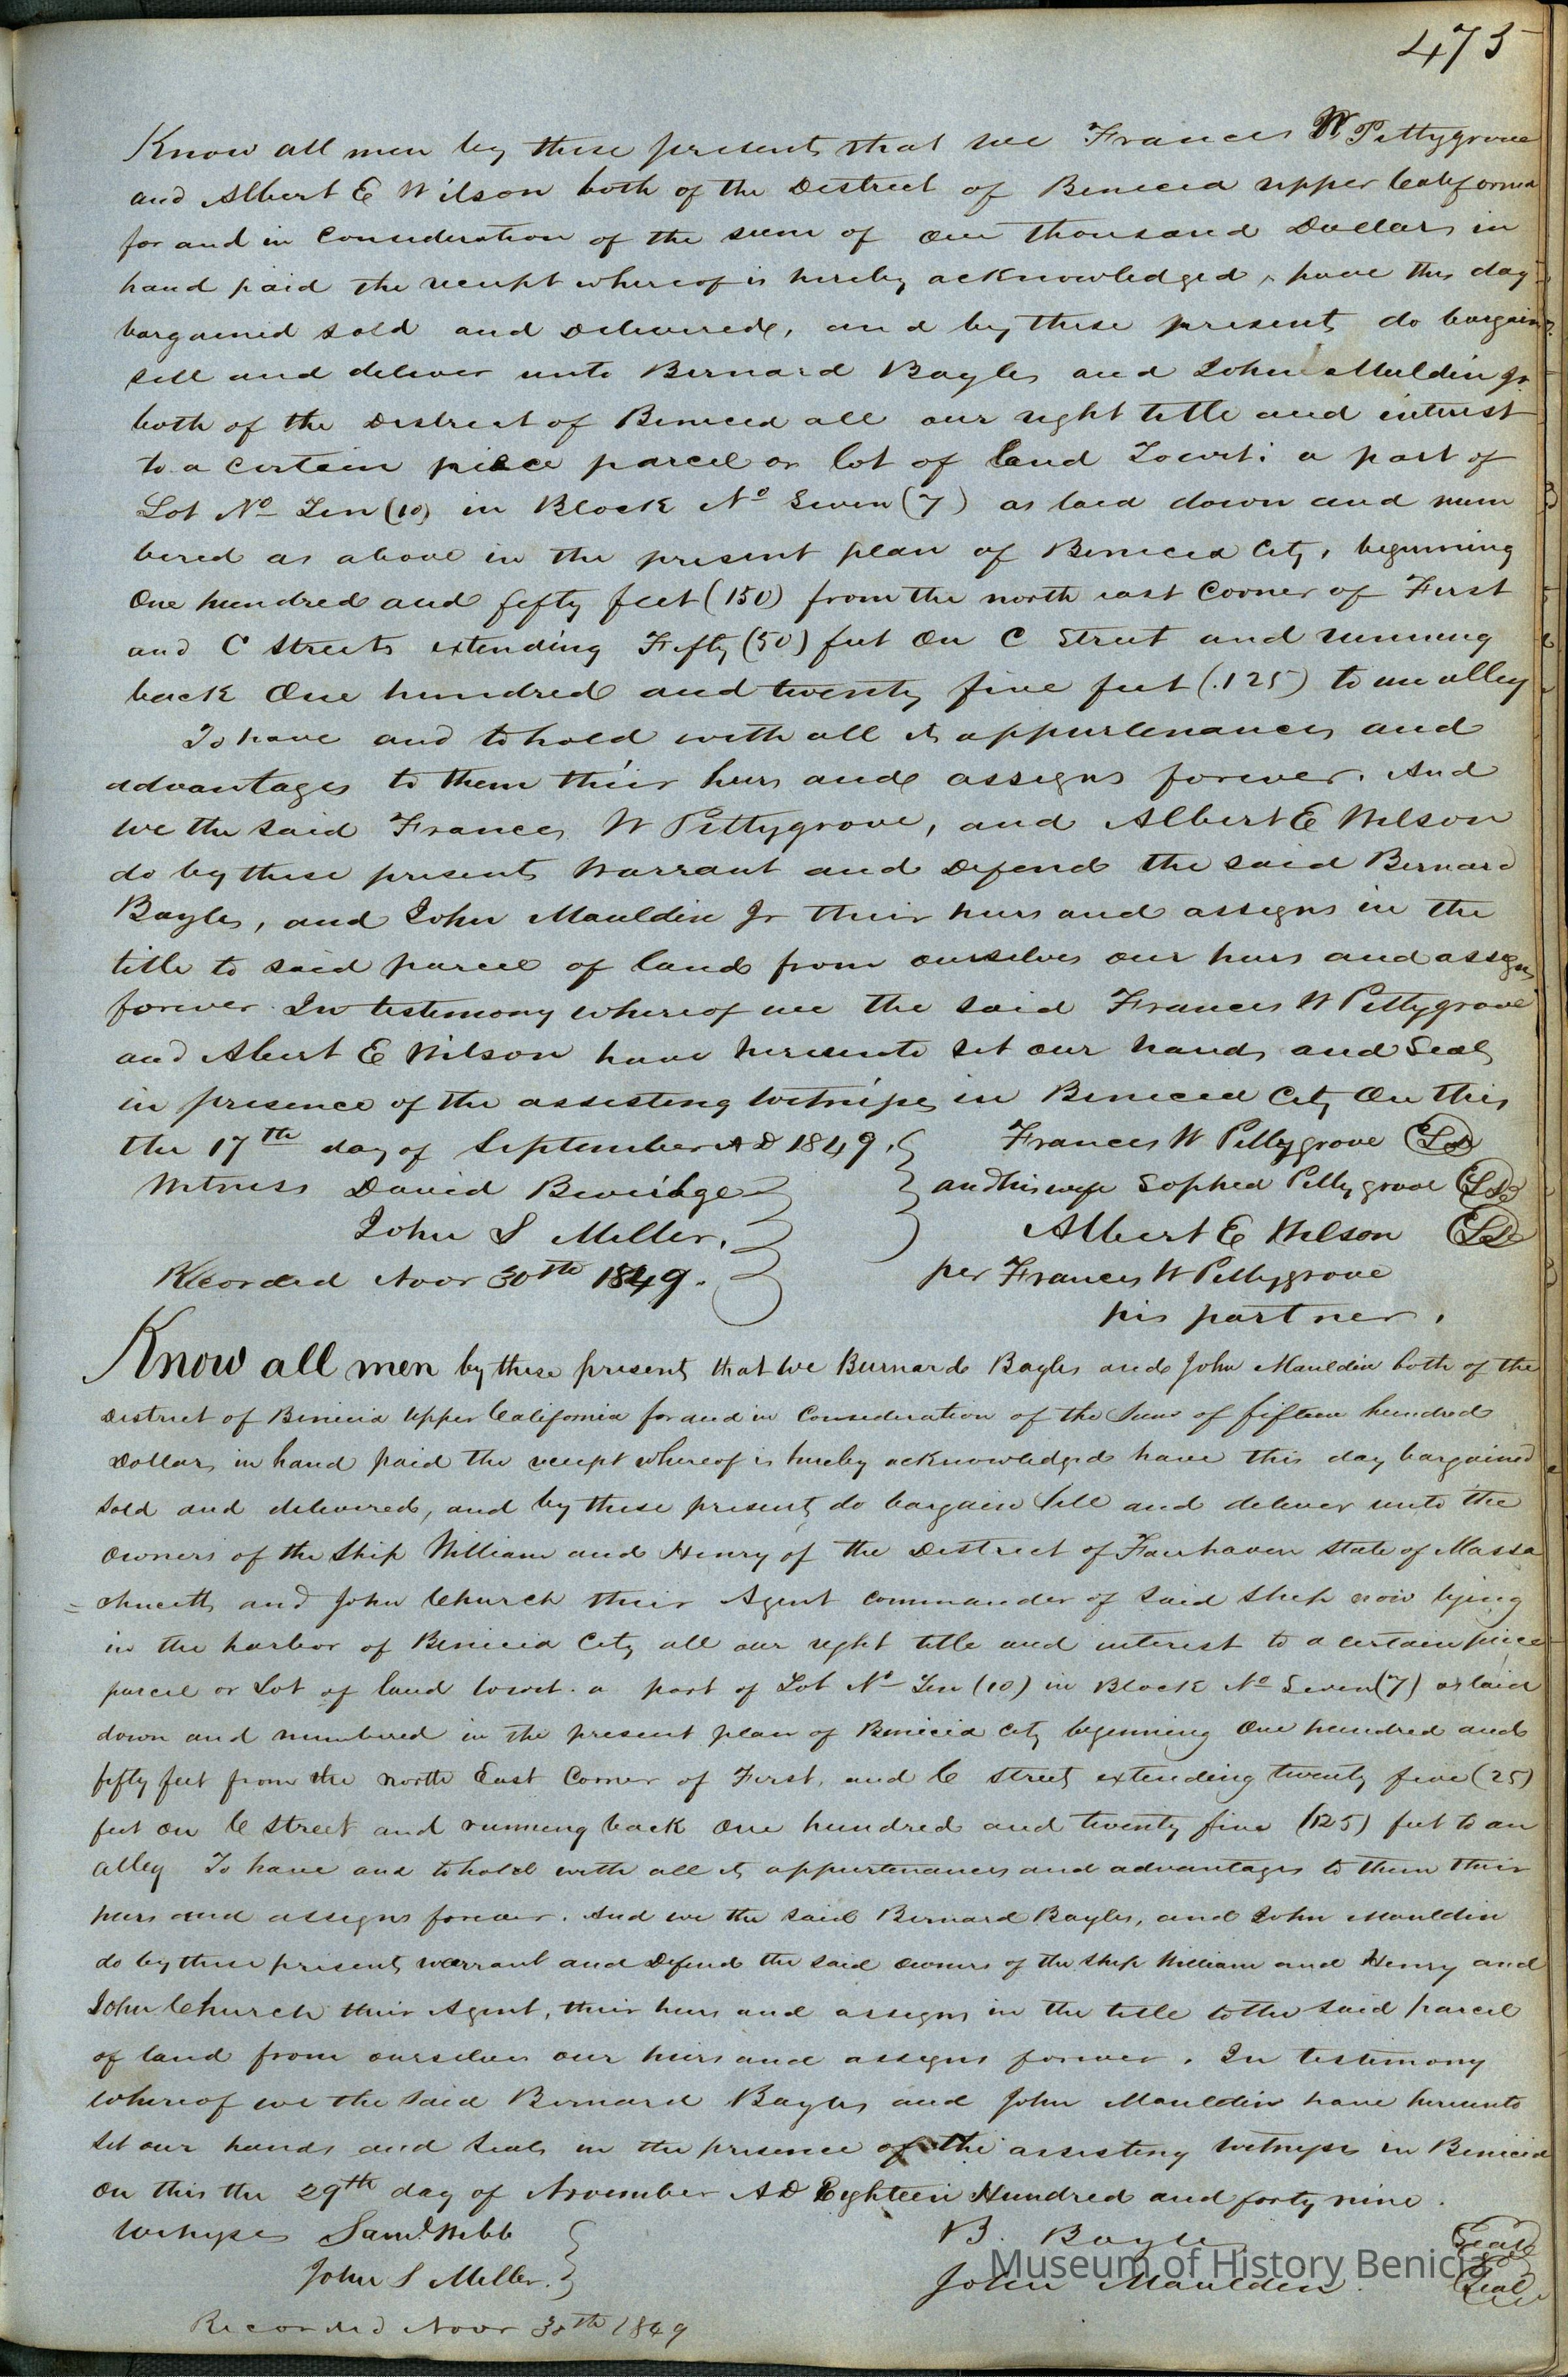 473
Know all men by these presents that we Frances W Pettygrove
and Albert E Wilson both of the District of Benicia upper California
for and in Consideration of the sum of One thousand Dollars in
hand paid the receipt whereof is hereby acknowledged, have this day
bargained sold and Delivered, and by these presents do bargain
sell and deliver unto Bernard Bayles and John Mauldin Jr
both of the District of Benicia all our right title and interest
to a certain piece parcel or lot of land Towit: a part of
Lot No Ten (10) in Block No Seven (7) as laid down and num
bered as above in the present plan of Benicia City, beginning
One hundred and fifty feet (150) from the north east Corner of First
and C Streets extending Fifty (50) feet On C Street and running
back One hundred and twenty five feet (125) to an alley
To have and to hold with all its appurtenances and
advantages to them their heirs and assigns forever. And
we the said Frances W Pettygrove, and Albert E Wilson
do by these presents Warrant and Defend the said Bernard
Bayles, and John Mauldin Jr their heirs and assigns in the
title to said parcel of land from ourselves our heirs and assigns
forever. In testimony whereof we the said Frances W Pettygrove
and Abert E Wilson have hereunto set our hands and Seals
in presence of the assisting Witnesses in Benicia City On this
the 17th day of September AD 1849. Frances W Pettygrove LS
Witness David Beveridge and his wife Sophia Pettygrove LS
John S Miller. Albert E Wilson LS
Recorded Novr 30th 1849. per Frances W Pettygrove
his partner.
Know all men by these presents that we Burnard Bayles and John Mauldin both of the
District of Benicia Upper California for and in Consideration of the Sum of fifteen hundred
Dollars in hand paid the receipt whereof is hereby acknowledged have this day bargained
sold and delivered, and by these presents do bargain sell and deliver unto the
Owners of the Ship William and Henry of the District of Fairhaven State of Massa
= chucetts and John Church their Agent Commander of said Ship now lying
in the harbor of Benicia City all our right title and interest to a certain piece
parcel or Lot of land towit. a part of Lot No Ten (10) in Block No Seven (7) as laid
down and numbered in the present plan of Benicia City beginning One hundred and
fifty feet from the North East Corner of First, and C Streets extending twenty five (25)
feet on C Street and running back One hundred and twenty five (125) feet to an
alley To have and to hold with all its appurtenances and advantages to them their
heirs and assigns forever. And we the said Bernard Bayles, and John Mauldin
do by these presents warrant and Defend the said Owners of the Ship William and Henry and
John Church their Agent, their heirs and assigns in the title to the said parcel
of land from ourselves our heirs and assigns forever. In testimony
whereof we the said Bernard Bayles and John Mauldin have hereunto
set our hands and Seals in the presence of the assisting Witnesses in Benicia
On this the 29th day of November AD Eighteen Hundred and forty nine.
Witnesses Saml Webb B. Bayles Seal
John S Miller. John Mauldin. Seal
Recorded Novr 30th 1849
Museum of History Benicia